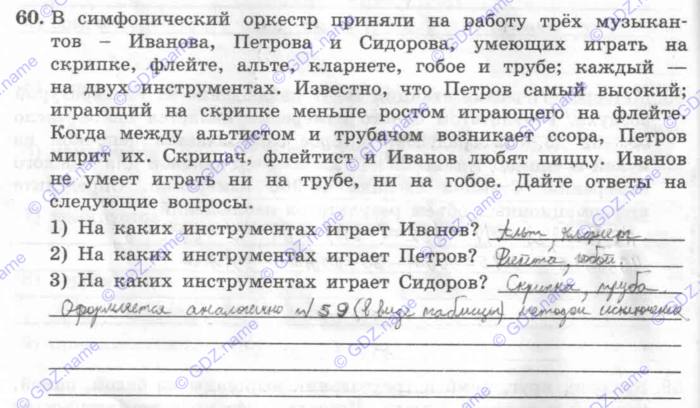 60. В симфонический оркестр приняли на работу трёх музыкан-
тов – Иванова, Петрова и Сидорова, умеющих играть на
скрипке, флейте, альте, кларнете, гобое и трубе; каждый —
на двух инструментах. Известно, что Петров самый высокий;
играющий на скрипке меньше ростом играющего на флейте.
Когда между альтистом и трубачом возникает ссора, Петров
мирит их. Скрипач, флейтист и Иванов любят пиццу. Иванов
не умеет играть ни на трубе, ни на гобое. Дайте ответы на
следующие вопросы.
1) На каких инструментах играет Иванов? Альт, кларнет
2) На каких инструментах играет Петров? Флейта, гобой
3) На каких инструментах играет Сидоров? Скрипка, труба.
Оформляется аналогично 59 (в виде таблицы) методом исключения
© GDZ.name